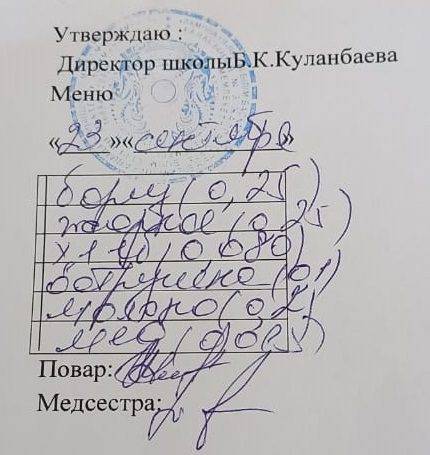 Утверждаю :
Директор школыБ.К.Куланбаева
Меню
«23»«сентября»
борщ (0,25)
жаркое (0,25)
хлеб (0,080)
молоко (0,2)
мед (0,005)
Повар:
Медсестра: